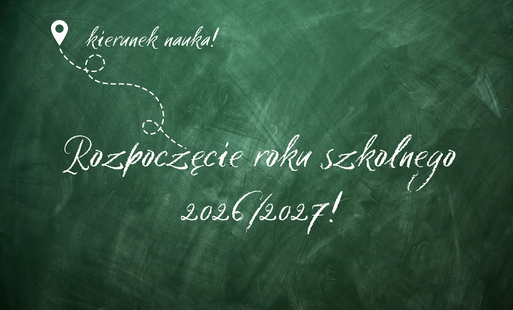 kierunek nauka!
Rozpoczęcie roku szkolnego
2026/2027!